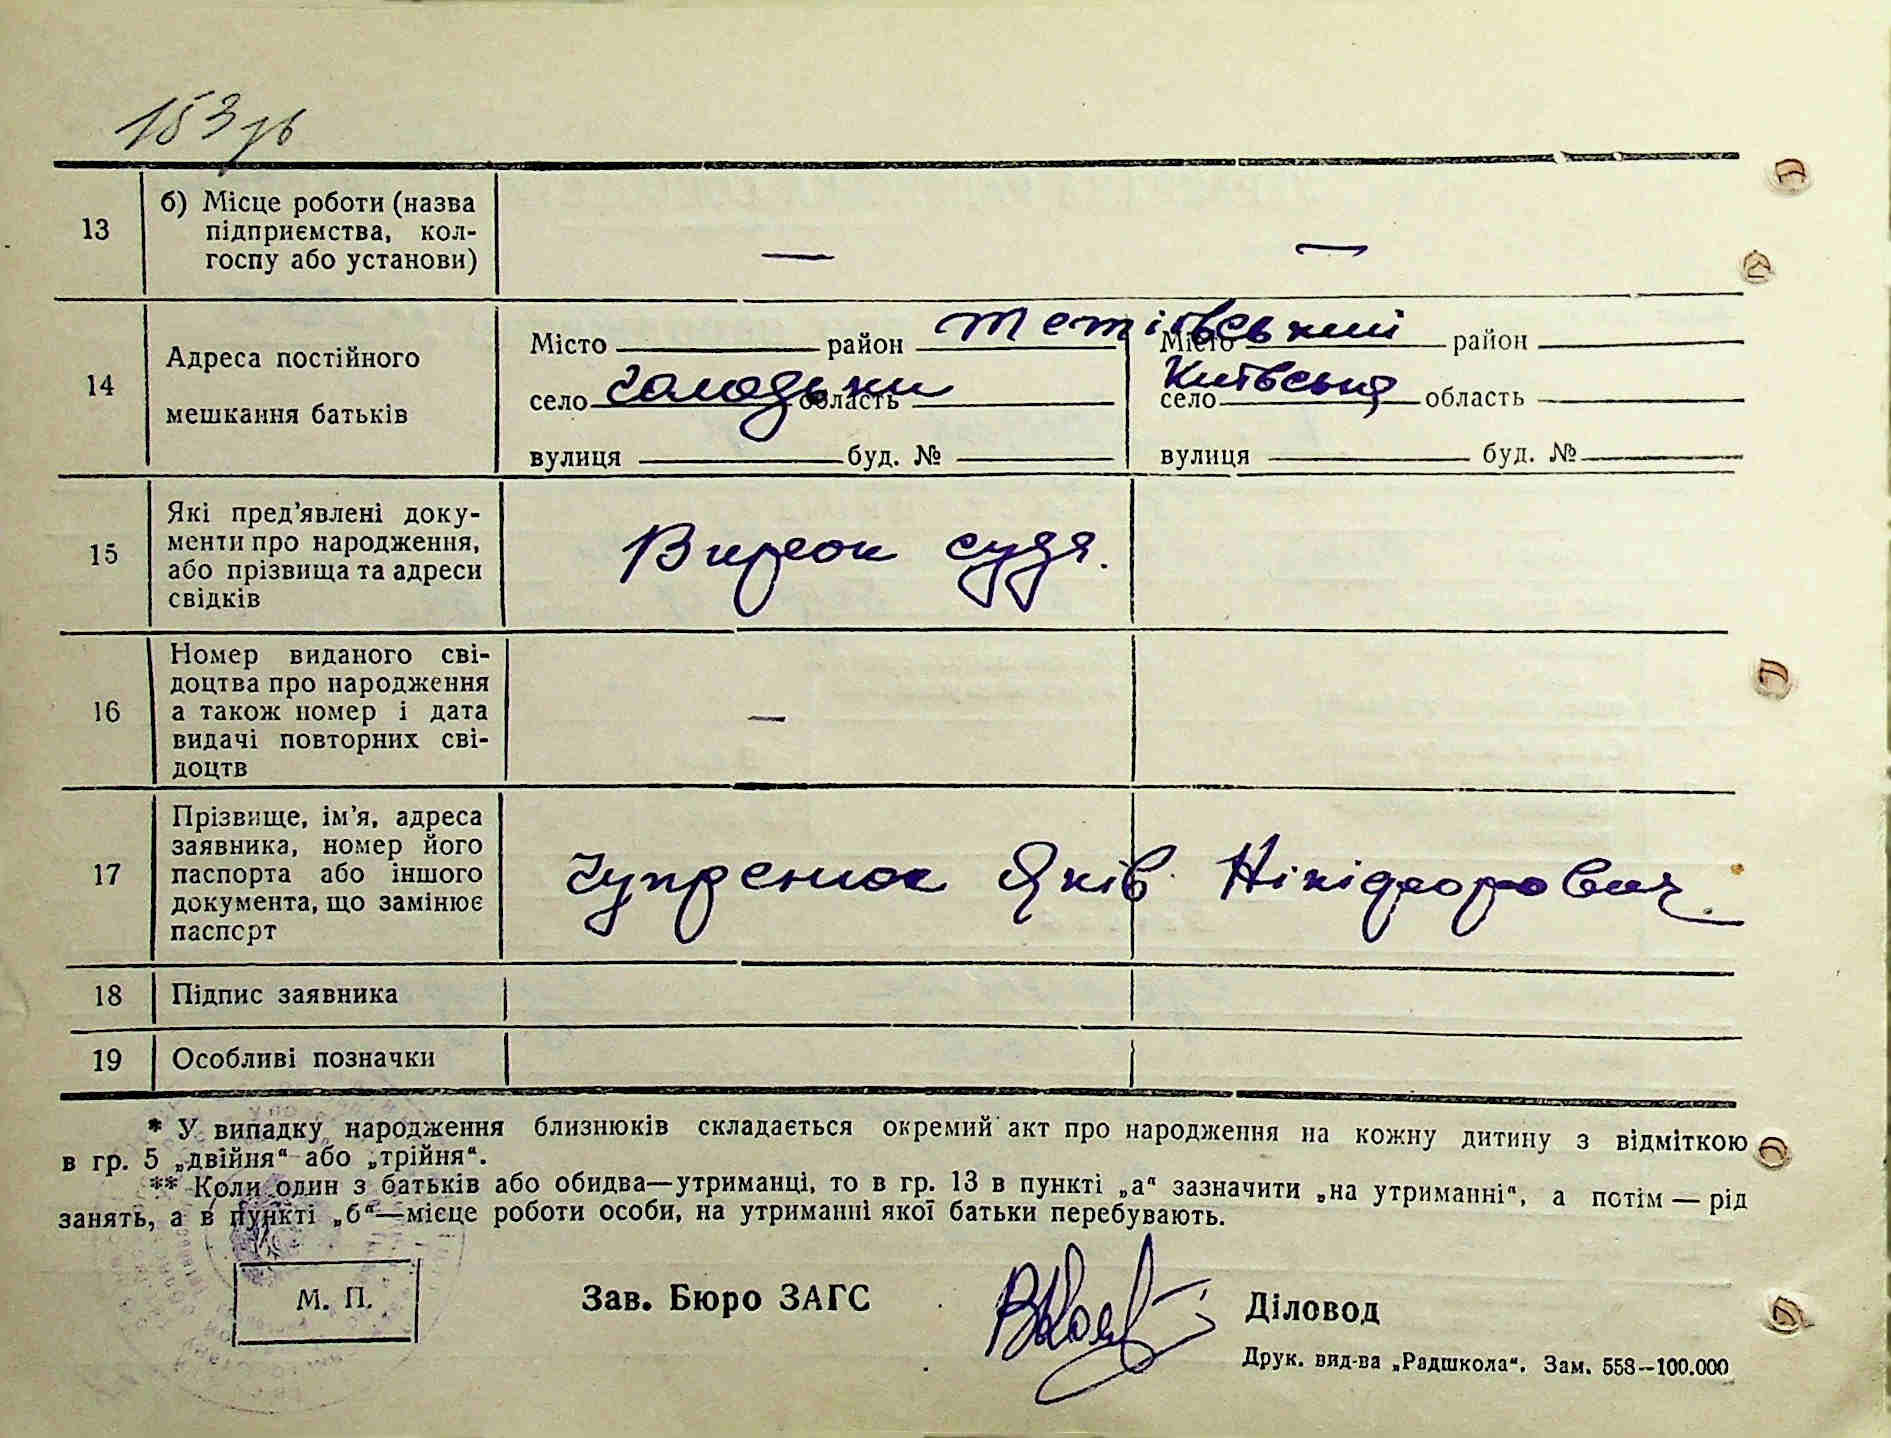 153 зв
13
б) Місце роботи (назва
підприємства, кол-
госпу або установи)
—
—
14
Адреса постійного
мешкання батьків
Місто район Тетіївський
село Голодьки область
вулиця буд. №
Місто район
село Київська область
вулиця буд. №
15
Які пред'явлені доку-
менти про народження,
або прізвища та адреси
свідків
Вирок суда.
16
Номер виданого сві-
доцтва про народження
а також номер і дата
видачі повторних сві-
доцтв
—
17
Прізвище, ім'я, адреса
заявника, номер його
паспорта або іншого
документа, що замінює
паспорт
Чупренюк Яків Нікіфорович.
18
Підпис заявника
19
Особливі позначки
* У випадку народження близнюків складається окремий акт про народження на кожну дитину з відміткою
в гр. 5 „двійня“ або „трійня“.
** Коли один з батьків або обидва—утриманці, то в гр. 13 в пункті „а“ зазначити „на утриманні“, а потім — рід
занять, а в пункті „б“—місце роботи особи, на утриманні якої батьки перебувають.
М. П.
Зав. Бюро ЗАГС
Діловод
Друк. вид-ва „Радшкола“. Зам. 558—100.000